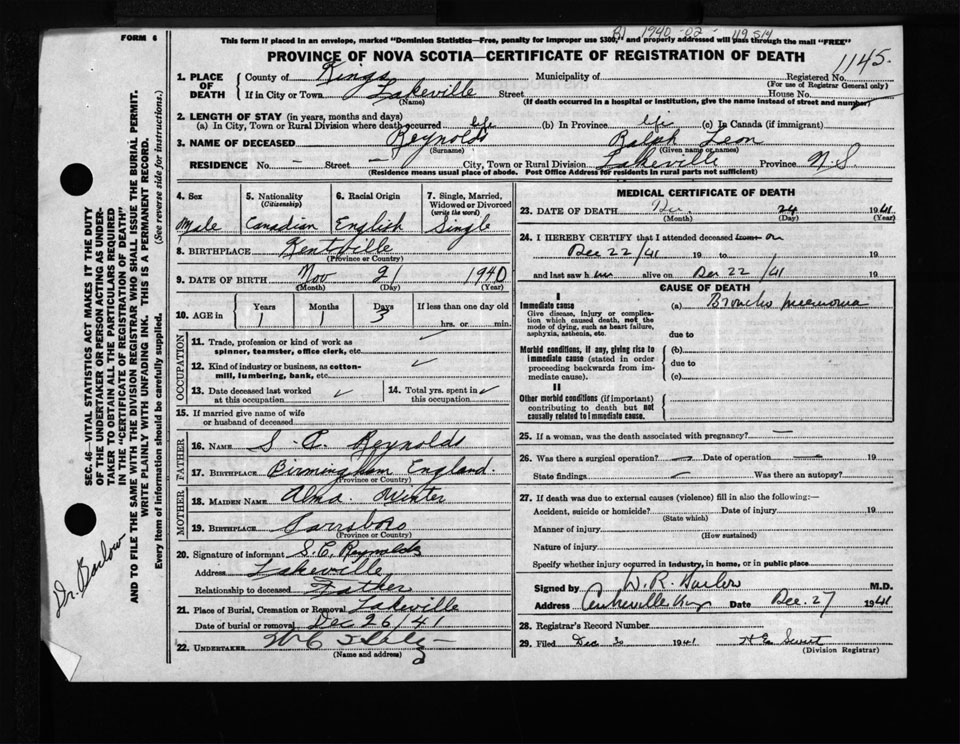 FORM 6
This form if placed in an envelope, marked "Dominion Statistics—Free, penalty for improper use $300," and properly addressed will pass through the mail "FREE"
1940-02-119514
PROVINCE OF NOVA SCOTIA—CERTIFICATE OF REGISTRATION OF DEATH
1145.
1. PLACE OF DEATH
County of Kings Municipality of Registered No.
(For use of Registrar General only)
If in City or Town Lakeville Street House No.
(Name) (If death occurred in a hospital or institution, give the name instead of street and number)
2. LENGTH OF STAY (in years, months and days)
(a) In City, Town or Rural Division where death occurred life (b) In Province life (c) In Canada (if immigrant)
3. NAME OF DECEASED Reynolds Ralph Leon
(Surname) (Given name or names)
RESIDENCE No. — Street — City, Town or Rural Division Lakeville Province N.S.
(Residence means usual place of abode. Post Office Address for residents in rural parts not sufficient)
4. Sex 5. Nationality (Citizenship) 6. Racial Origin 7. Single, Married, Widowed or Divorced (write the word)
Male Canadian English Single
8. BIRTHPLACE Kentville
(Province or Country)
9. DATE OF BIRTH Nov 21 1940
(Month) (Day) (Year)
10. AGE in Years Months Days If less than one day old
1 1 3 hrs. or min.
OCCUPATION
11. Trade, profession or kind of work as spinner, teamster, office clerk, etc.
12. Kind of industry or business, as cotton-mill, lumbering, bank, etc.
13. Date deceased last worked at this occupation
14. Total yrs. spent in this occupation
15. If married give name of wife or husband of deceased
FATHER
16. NAME S. C. Reynolds
17. BIRTHPLACE Birmingham England.
(Province or Country)
MOTHER
18. MAIDEN NAME Alma Winter
19. BIRTHPLACE Parrsboro
(Province or Country)
20. Signature of informant S.C. Reynolds
Address Lakeville
Relationship to deceased Father
21. Place of Burial, Cremation or Removal Lakeville
Date of burial or removal Dec 26/41
22. UNDERTAKER
(Name and address)
MEDICAL CERTIFICATE OF DEATH
23. DATE OF DEATH Dec. 24 1941
(Month) (Day) (Year)
24. I HEREBY CERTIFY that I attended deceased from on
Dec 22/41 19 to 19
and last saw him alive on Dec 22/41 19
CAUSE OF DEATH
I
Immediate cause (a) Broncho pneumonia
Give disease, injury or complication which caused death, not the mode of dying, such as heart failure, asphyxia, asthenia, etc.
due to
Morbid conditions, if any, giving rise to immediate cause (stated in order proceeding backwards from immediate cause).
(b)
due to
(c)
II
Other morbid conditions (if important) contributing to death but not causally related to immediate cause.
25. If a woman, was the death associated with pregnancy? —
26. Was there a surgical operation? — Date of operation —
State findings Was there an autopsy?
27. If death was due to external causes (violence) fill in also the following:—
Accident, suicide or homicide? Date of injury 19
(State which)
Manner of injury
(How sustained)
Nature of injury
Specify whether injury occurred in industry, in home, or in public place
Signed by W. R. M.D.
Address Date Dec. 27 1941
28. Registrar's Record Number
29. Filed Dec 30 1941
(Division Registrar)
SEC. 46—VITAL STATISTICS ACT MAKES IT THE DUTY
OF THE UNDERTAKER OR PERSON ACTING AS UNDER-
TAKER TO OBTAIN ALL THE PARTICULARS REQUIRED
IN THE "CERTIFICATE OF REGISTRATION OF DEATH"
AND TO FILE THE SAME WITH THE DIVISION REGISTRAR WHO SHALL ISSUE THE BURIAL PERMIT.
WRITE PLAINLY WITH UNFADING INK. THIS IS A PERMANENT RECORD.
Every item of information should be carefully supplied. (See reverse side for instructions.)
Dr. Barlow